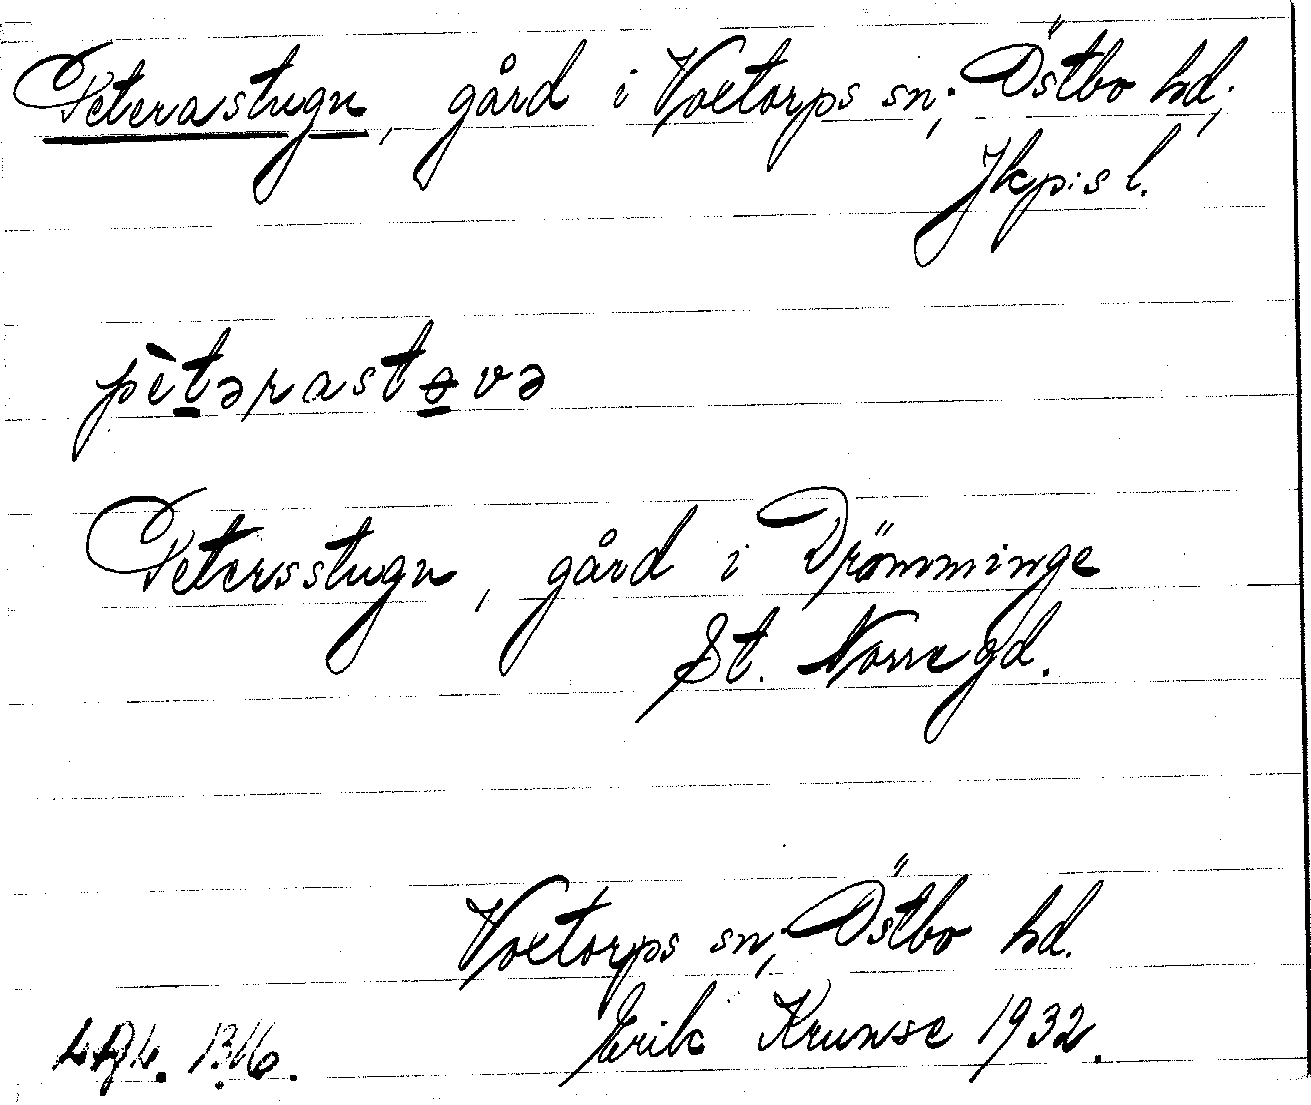 Peterastugu, gård i Voxtorps sn; Östbo hd;
Jkp:s l.
pètərastøvə
Petersstugu, gård i Drömminge
St. Norregd.
Voxtorps sn; Östbo hd.
Erik Krunse 1932.